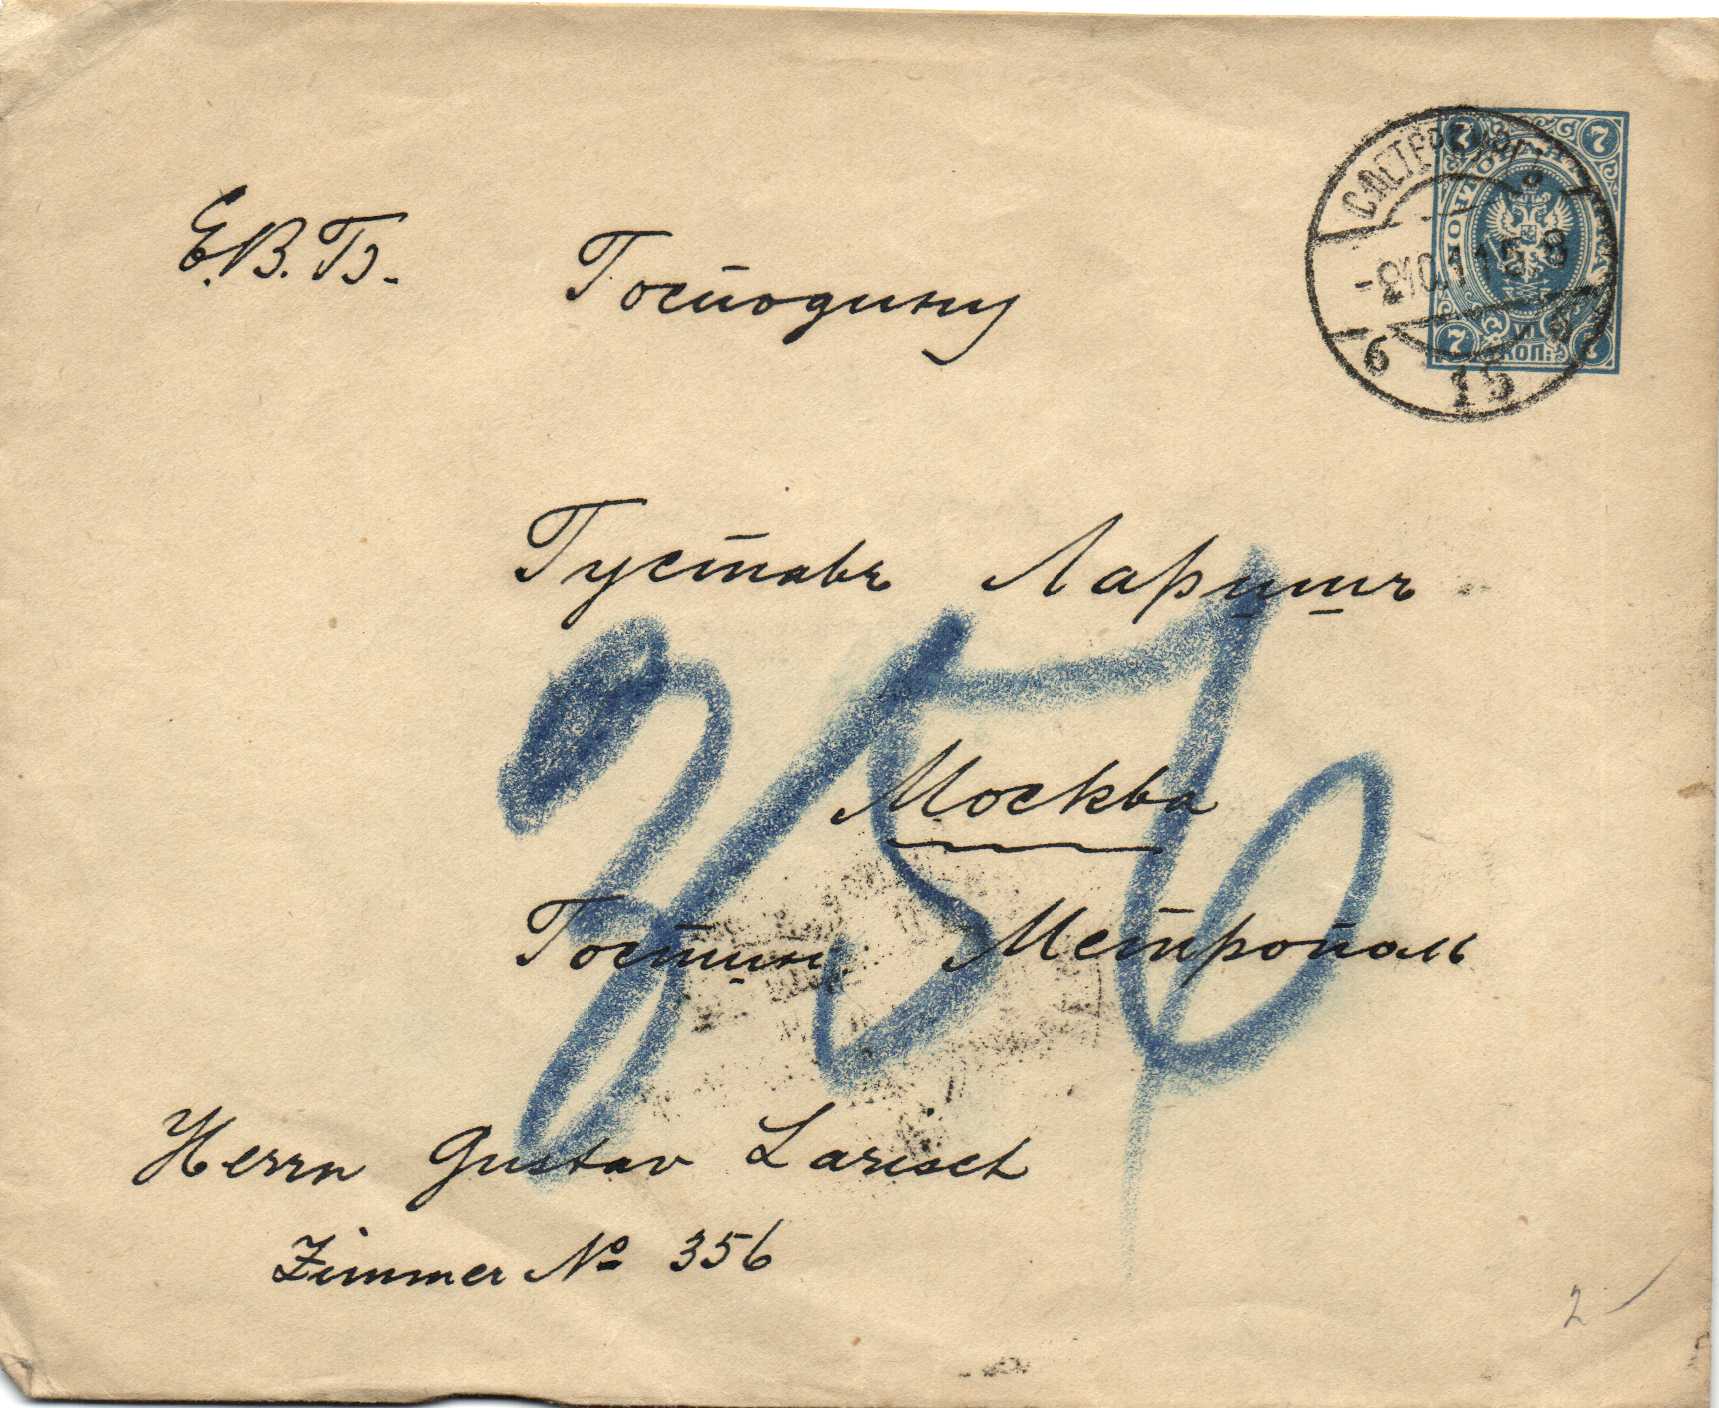 Е.В.Б. Господину
7 7
С.ПЕТЕРБУРГ
7 КОП. 7
6 15
Густавъ Ларишъ
Москва
Гостин. Метрополь
356
Herrn Gustav Larisch
Zimmer № 356
2